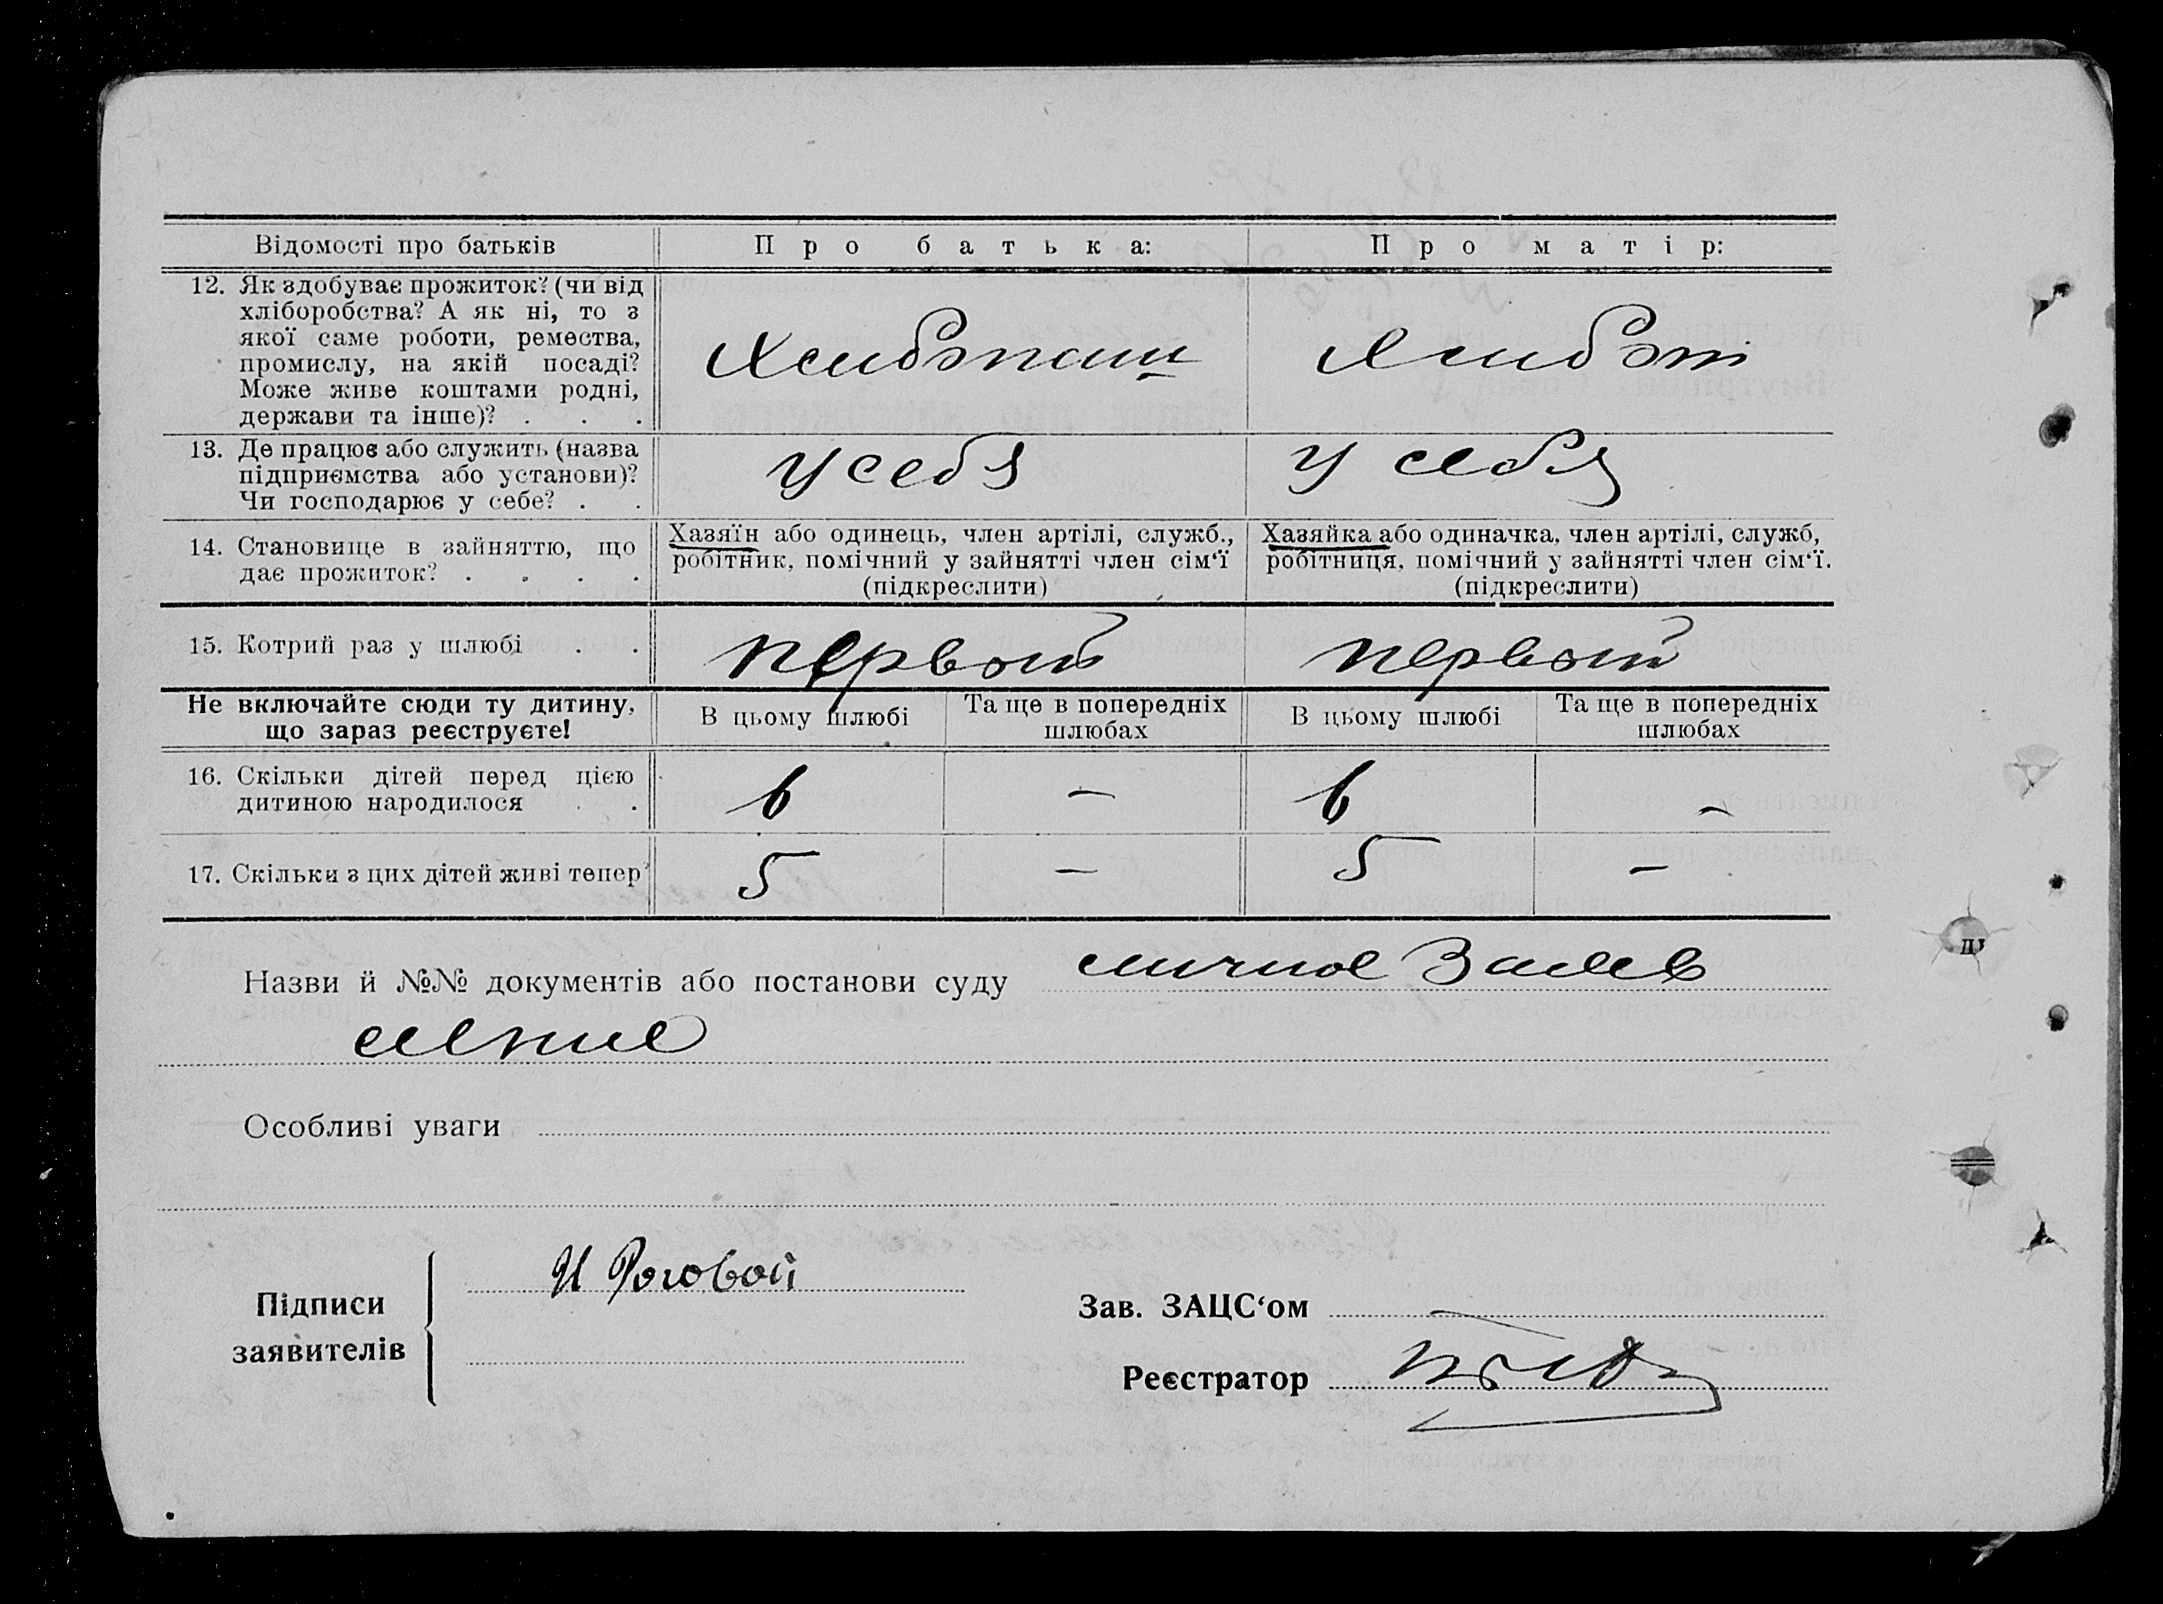 Відомості про батьків
Про батька:
Про матір:
12. Як здобуває прожиток? (чи від
хліборобства? А як ні, то з
якої саме роботи, ремества,
промислу, на якій посаді?
Може живе коштами родні,
держави та інше)? . . .
Хлибопаш
Хлибоп
13. Де працює або служить (назва
підприємства або установи)?
Чи господарює у себе? . .
у себя
у себя
14. Становище в зайняттю, що
дає прожиток? . . . .
Хазяїн або одинець, член артілі, служб.,
робітник, помічний у зайнятті член сім‘ї
(підкреслити)
Хазяйка або одиначка, член артілі, служб,
робітниця, помічний у зайнятті член сім‘ї.
(підкреслити)
15. Котрий раз у шлюбі . .
первый
первый
Не включайте сюди ту дитину,
що зараз реєструєте!
В цьому шлюбі
Та ще в попередніх
шлюбах
В цьому шлюбі
Та ще в попередніх
шлюбах
16. Скільки дітей перед цією
дитиною народилося . .
6 — 6 —
17. Скільки з цих дітей живі тепер?
5 — 5 —
Назви й №№ документів або постанови суду личное Заяв
ление
Особливі уваги
Підписи
заявителів
И Роговой
Зав. ЗАЦС‘ом
Реєстратор